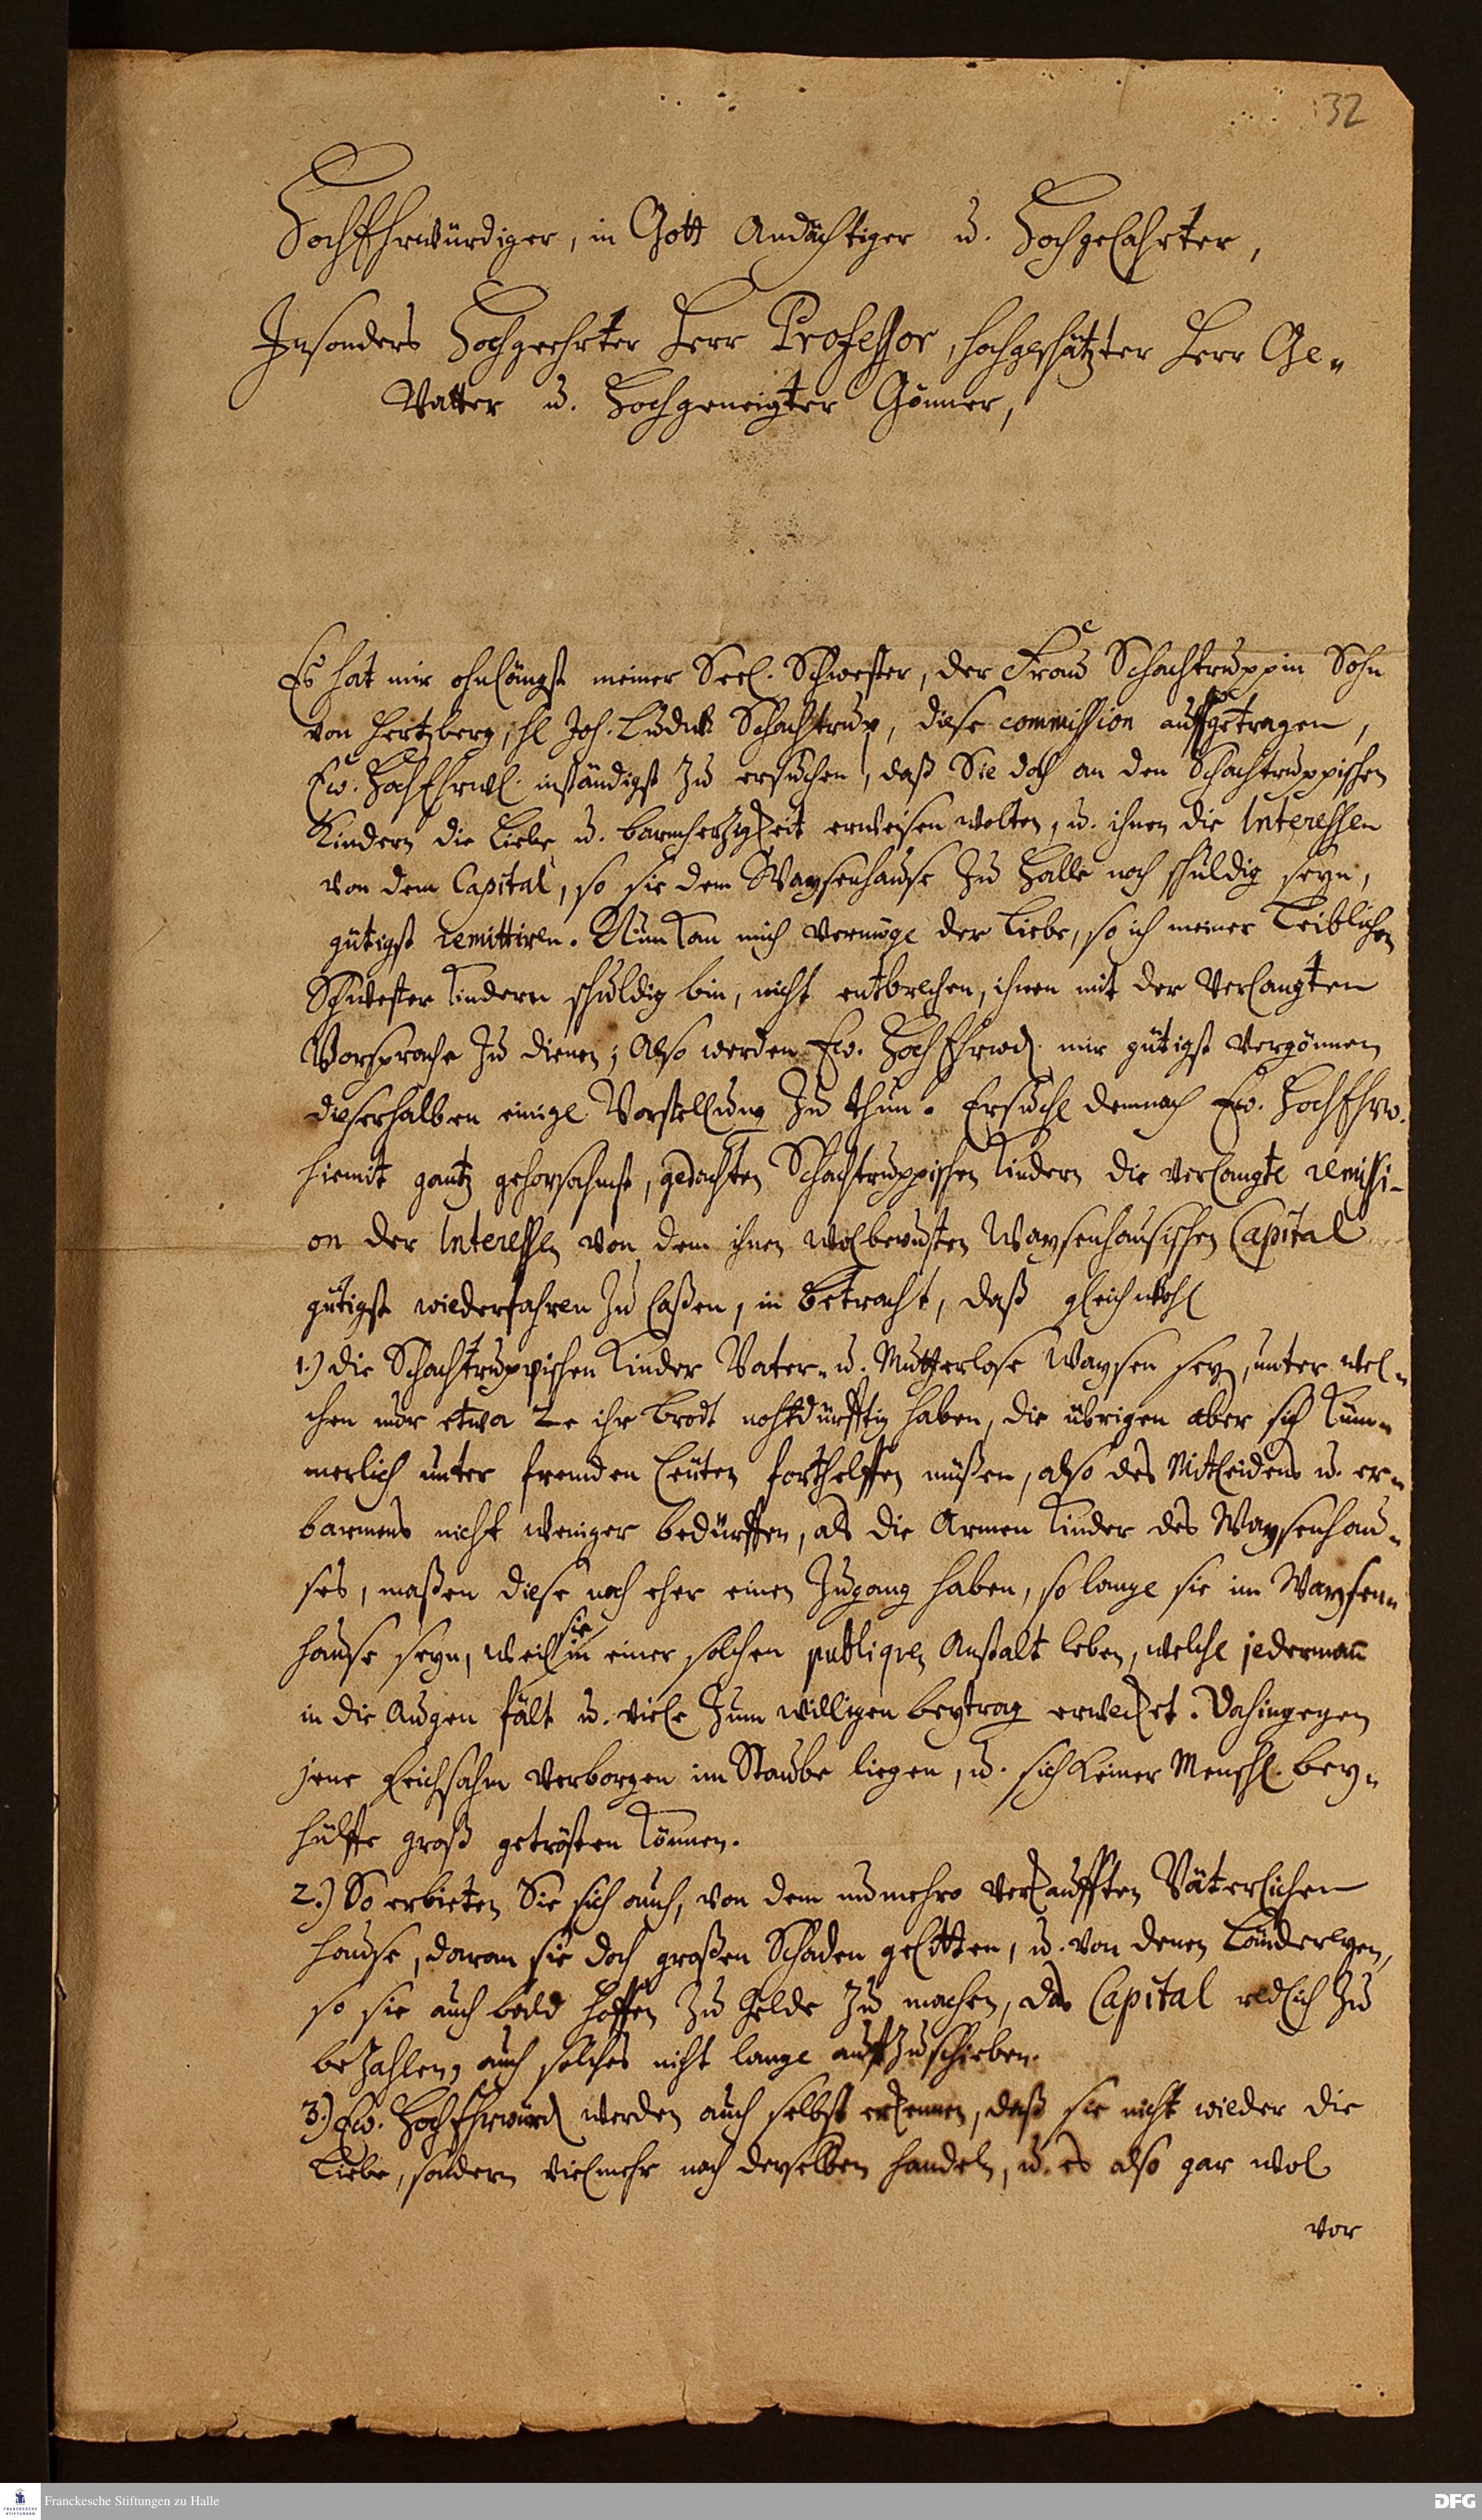 32
HochEhrwürdiger, in Gott Andächtiger u. Hochgelahrter,
Insonders Hochgeehrter Herr Professor, hochgeschätzter Herr Ge-
Vatter u. Hochgeneigter Gönner,
Es hat mir ohnlängst meiner Seel. Schwester, der Frau Schachtruppin Sohn
von Hertzberg, H Joh. Ludw. Schachtrup, diese commission auffgetragen,
Ew. HochEhrwd. inständigst zu ersuchen, daß Sie doch an den Schachtruppischen
Kindern die Liebe u. barmherzigkeit erweisen wolten, u. ihnen die Interessen
von dem Capital, so sie dem Waysenhause zu Halle noch schuldig seyn,
gütigst remittiren. Nun kan mich vermöge der Liebe, so ich meiner Leiblichen
Schwester Kindern schuldig bin, nicht entbrechen, ihnen mit der verlangten
Vorsprache zu dienen; Also werden Ew. HochEhrwd. mir gütigst vergönnen
dieserhalben einige Vorstellung zu thun. Ersuche demnach Ew. HochEhrw.
hiemit gantz gehorsahmst, gedachten Schachtruppischen Kindern die verlangte remissi-
on der Interessen von dem ihnen wolbewusten Waysenhausischen Capital
gütigst wiederfahren zu laßen, in betracht, daß gleichwohl
1.) die Schachtruppischen Kinder Vater- u. Mutterlose Waysen seyn, unter wel-
chen nur etwa 2e ihr brodt nohtdürfftig haben, die übrigen aber sich küm-
merlich unter fremden Leuten forthelffen müßen, also des Mitleidens u. er-
barmens nicht weniger bedürffen, als die Armen Kinder des Waysenhau-
ses, maßen diese noch eher einen Zugang haben, so lange sie im Waysen-
hause seyn, weil sie in einer solchen publiquen Anstalt leben, welche jederman̅
in die Augen fält u. viele zum willigen beytrag erwecket. Dahingegen
jene gleichsahm verborgen im Staube liegen, u. sich keiner Menschl. bey-
hülffe groß getrösten können.
2.) So erbieten Sie sich auch, von dem nunmehro verkaufften Väterlichen
Hause, daran sie doch großen Schaden gelitten, u. von denen Ländereyen,
so sie auch bald hoffen zu Gelde zu machen, das Capital redlich zu
bezahlen, auch solches nicht lange auffzuschieben.
3.) Ew. HochEhrwürd werden auch selbst erkennen, daß sie nicht wieder die
Liebe, sondern vielmehr nach derselben handeln, u. es also gar wol
vor
Franckesche Stiftungen zu Halle
DFG